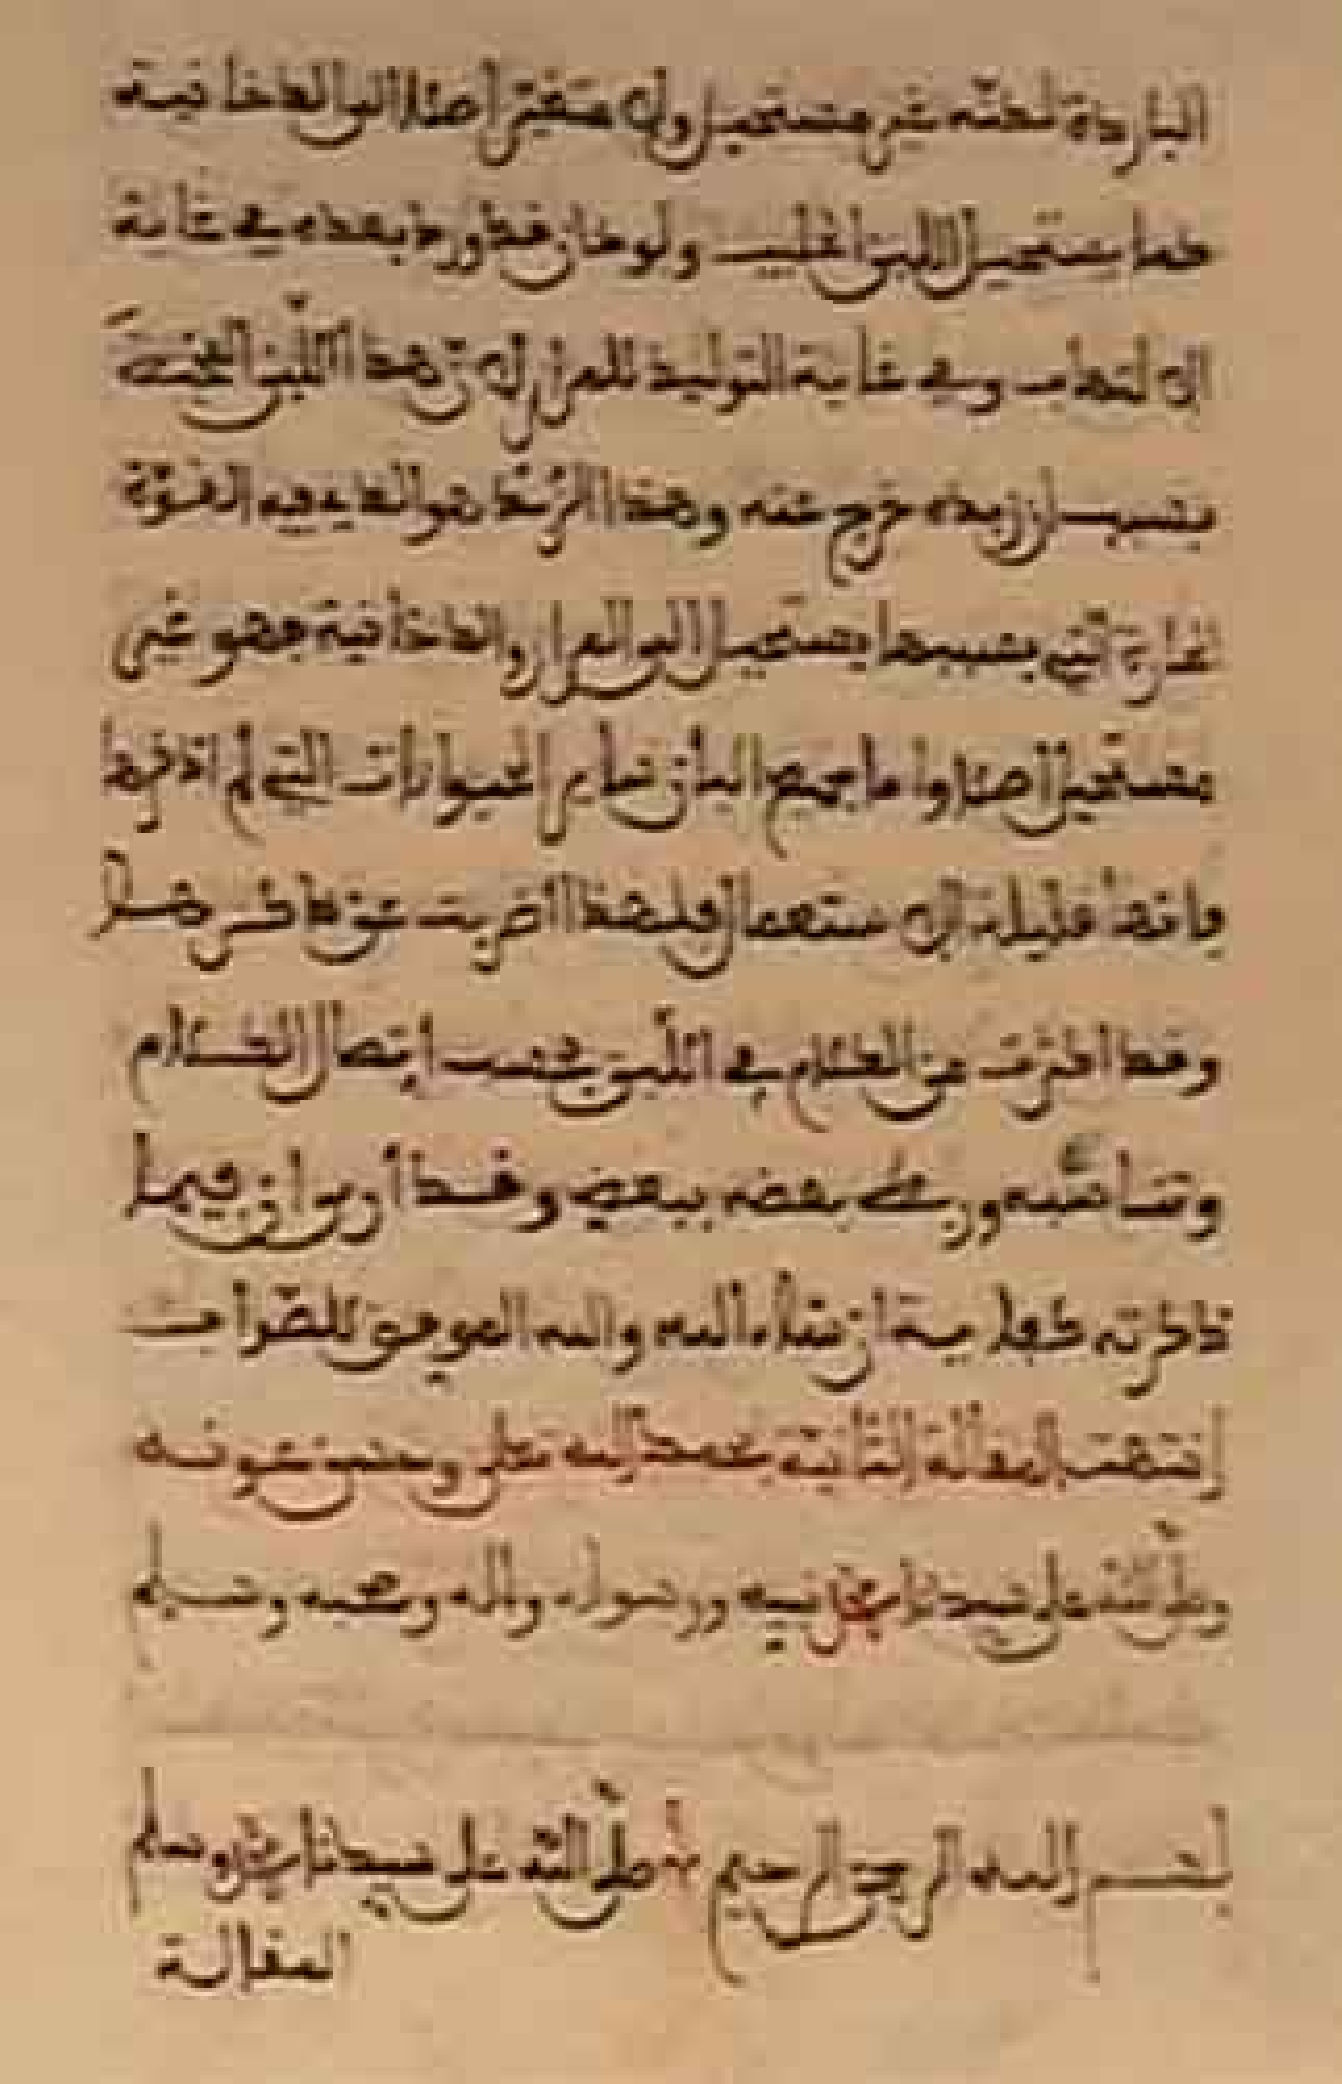 الباردة لكنه غير مستحيل ولا متغير أصلا الى الدخانية
كما يستحيل اللبن الحليب ولو كان قد ورد بعده في غاية
الالتهاب وفي غاية التوليد للمرار لان هذا اللبن الثخين
بسبب ان زبده خرج عنه وهذا الزبد هو الذي فيه القوة
الحارة التي بسببها يستحيل الى المرار والدخانية فهو غير
مستحيل اصلا واما جميع البان سائر الحيوانات التي لم اذكرها
فانها قليلة الاستعمال فلهذا أضربت عن ذكرها
وقد اكثرت من الكلام في اللبن بحسب اتصال الكلام
وتناسبه وربط بعضه ببعض وقد أرى ان فيما
ذكرته كفاية ان شاء الله والله الموفق للصواب
انتهت المقالة الثانية بحمد الله تعلى وحسن عونه
وصلى الله على سيدنا محمد نبيه ورسوله واله وصحبه وسلم
بسم الله الرحمن الرحيم صلى الله على سيدنا محمد وسلم
المقالة